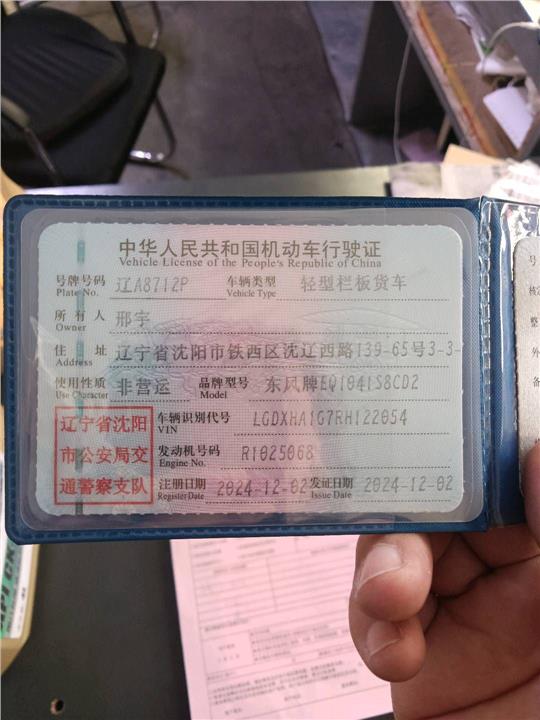 中华人民共和国机动车行驶证
Vehicle License of the People's Republic of China
号牌号码 辽A8712P 车辆类型 轻型栏板货车
Plate No. Vehicle Type
所有人 邢宇
Owner
住址 辽宁省沈阳市铁西区沈辽西路139-65号3-3-
Address
使用性质 非营运 品牌型号 东风牌EQ1041S8CD2
Use Character Model
辽宁省沈阳
市公安局交
通警察支队
车辆识别代号 LGDXHA1G7RH122054
VIN
发动机号码 R1025068
Engine No.
注册日期 2024-12-02 发证日期 2024-12-02
Register Date Issue Date
号
核
整
外
备